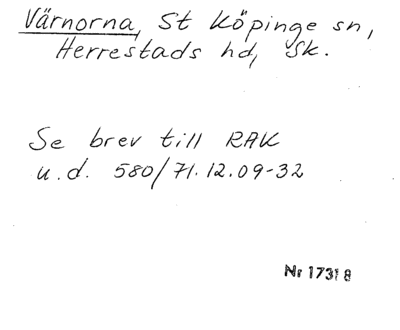 Värnorna, St Köpinge sn,
Herrestads hd, Sk.
Se brev till RAK
u.d. 580/71.12.09-32
Nr 17318